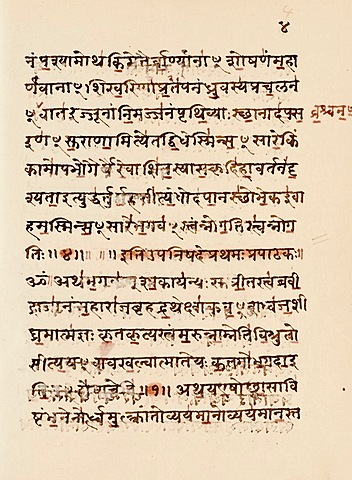 ४
नं पश्यामोथ किमेतैर्वान्यानाꣳ शोषणं महा
र्णवानाꣳ शिखरिणां प्रपतनं ध्रुवस्य प्रचलनं
वातरज्जूनां निमज्जनं पृथिव्याः स्थानादपस व्रश्चनं
रणꣳ सुराणामित्येतद्विधेस्मिन्सꣳसारे किं
कामोपभोगैर्यैरेवाशितस्यासकृदिहावर्तनं दृ
श्यता इत्युद्धर्तुमर्हसीत्यंधोदपानस्थोभेक इवा
हमस्मिन्सꣳसारे भगवꣳस्त्वंन्नोगतिस्त्वन्नोग
तिः ॥४॥ इति उपनिषदे प्रथमः प्रपाठकः॥
ॐ अथ भगवाꣳशाकायन्यः सुप्रीतस्त्वब्रवी
द्राजानं महाराज बृहद्रथेक्ष्वाकुवꣳशध्वज शी
घ्रमात्मज्ञः कृतकृत्यस्त्वं मरुन्नाम्नेति विश्रुतो
सीत्ययं वावखल्वात्मातेयः कतमो भगव इ
ति ॥१॥ अथ यएषोछ्वासावि
ष्टंभनेनोर्ध्वमुत्क्रांतोव्ययमानोव्ययमानस्त